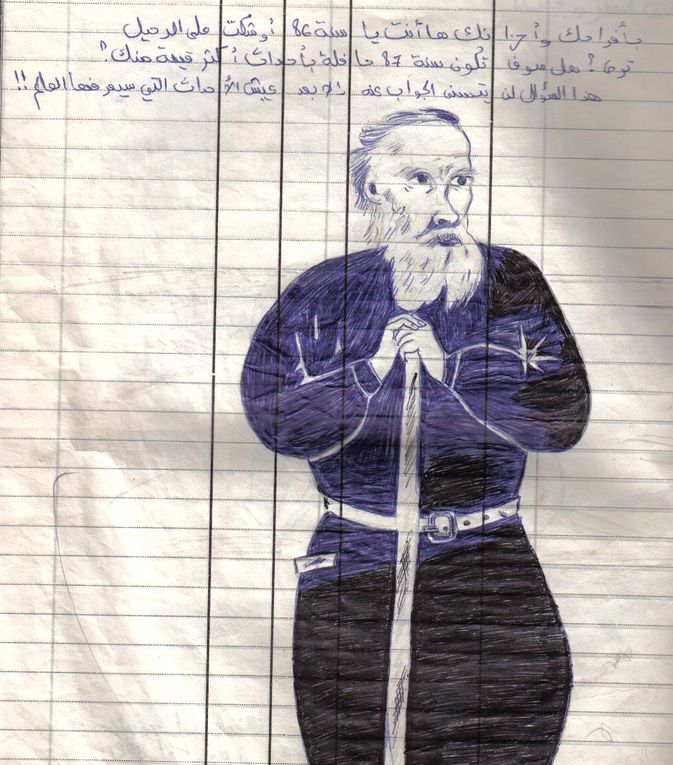 بأفراحك وأحزانك ها أنت يا سنة 86 أوشكت على الرحيل
ترى؟ هل سوف تكون سنة 87 حافلة بأحداث أكثر قيمة منك؟
هذا السؤال لن يتسنى الجواب عنه إلا بعد عيش الأحداث التي سيعرفها العالم!!